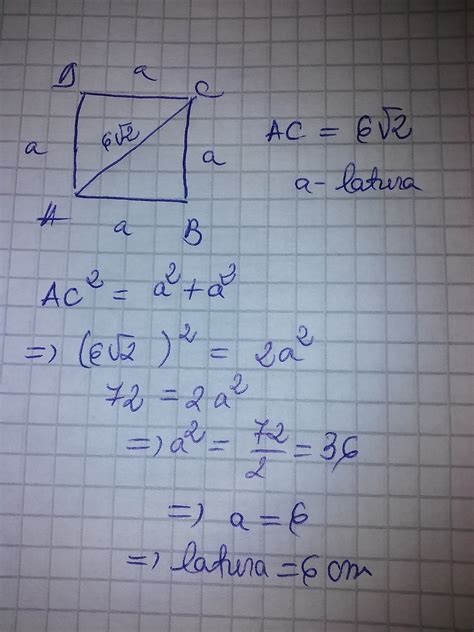 D a C
a 6√2 a
A a B
AC = 6√2
a - latura
AC² = a² + a²
=> (6√2)² = 2a²
72 = 2a²
=> a² = 72/2 = 36
=> a = 6
=> latura = 6 cm